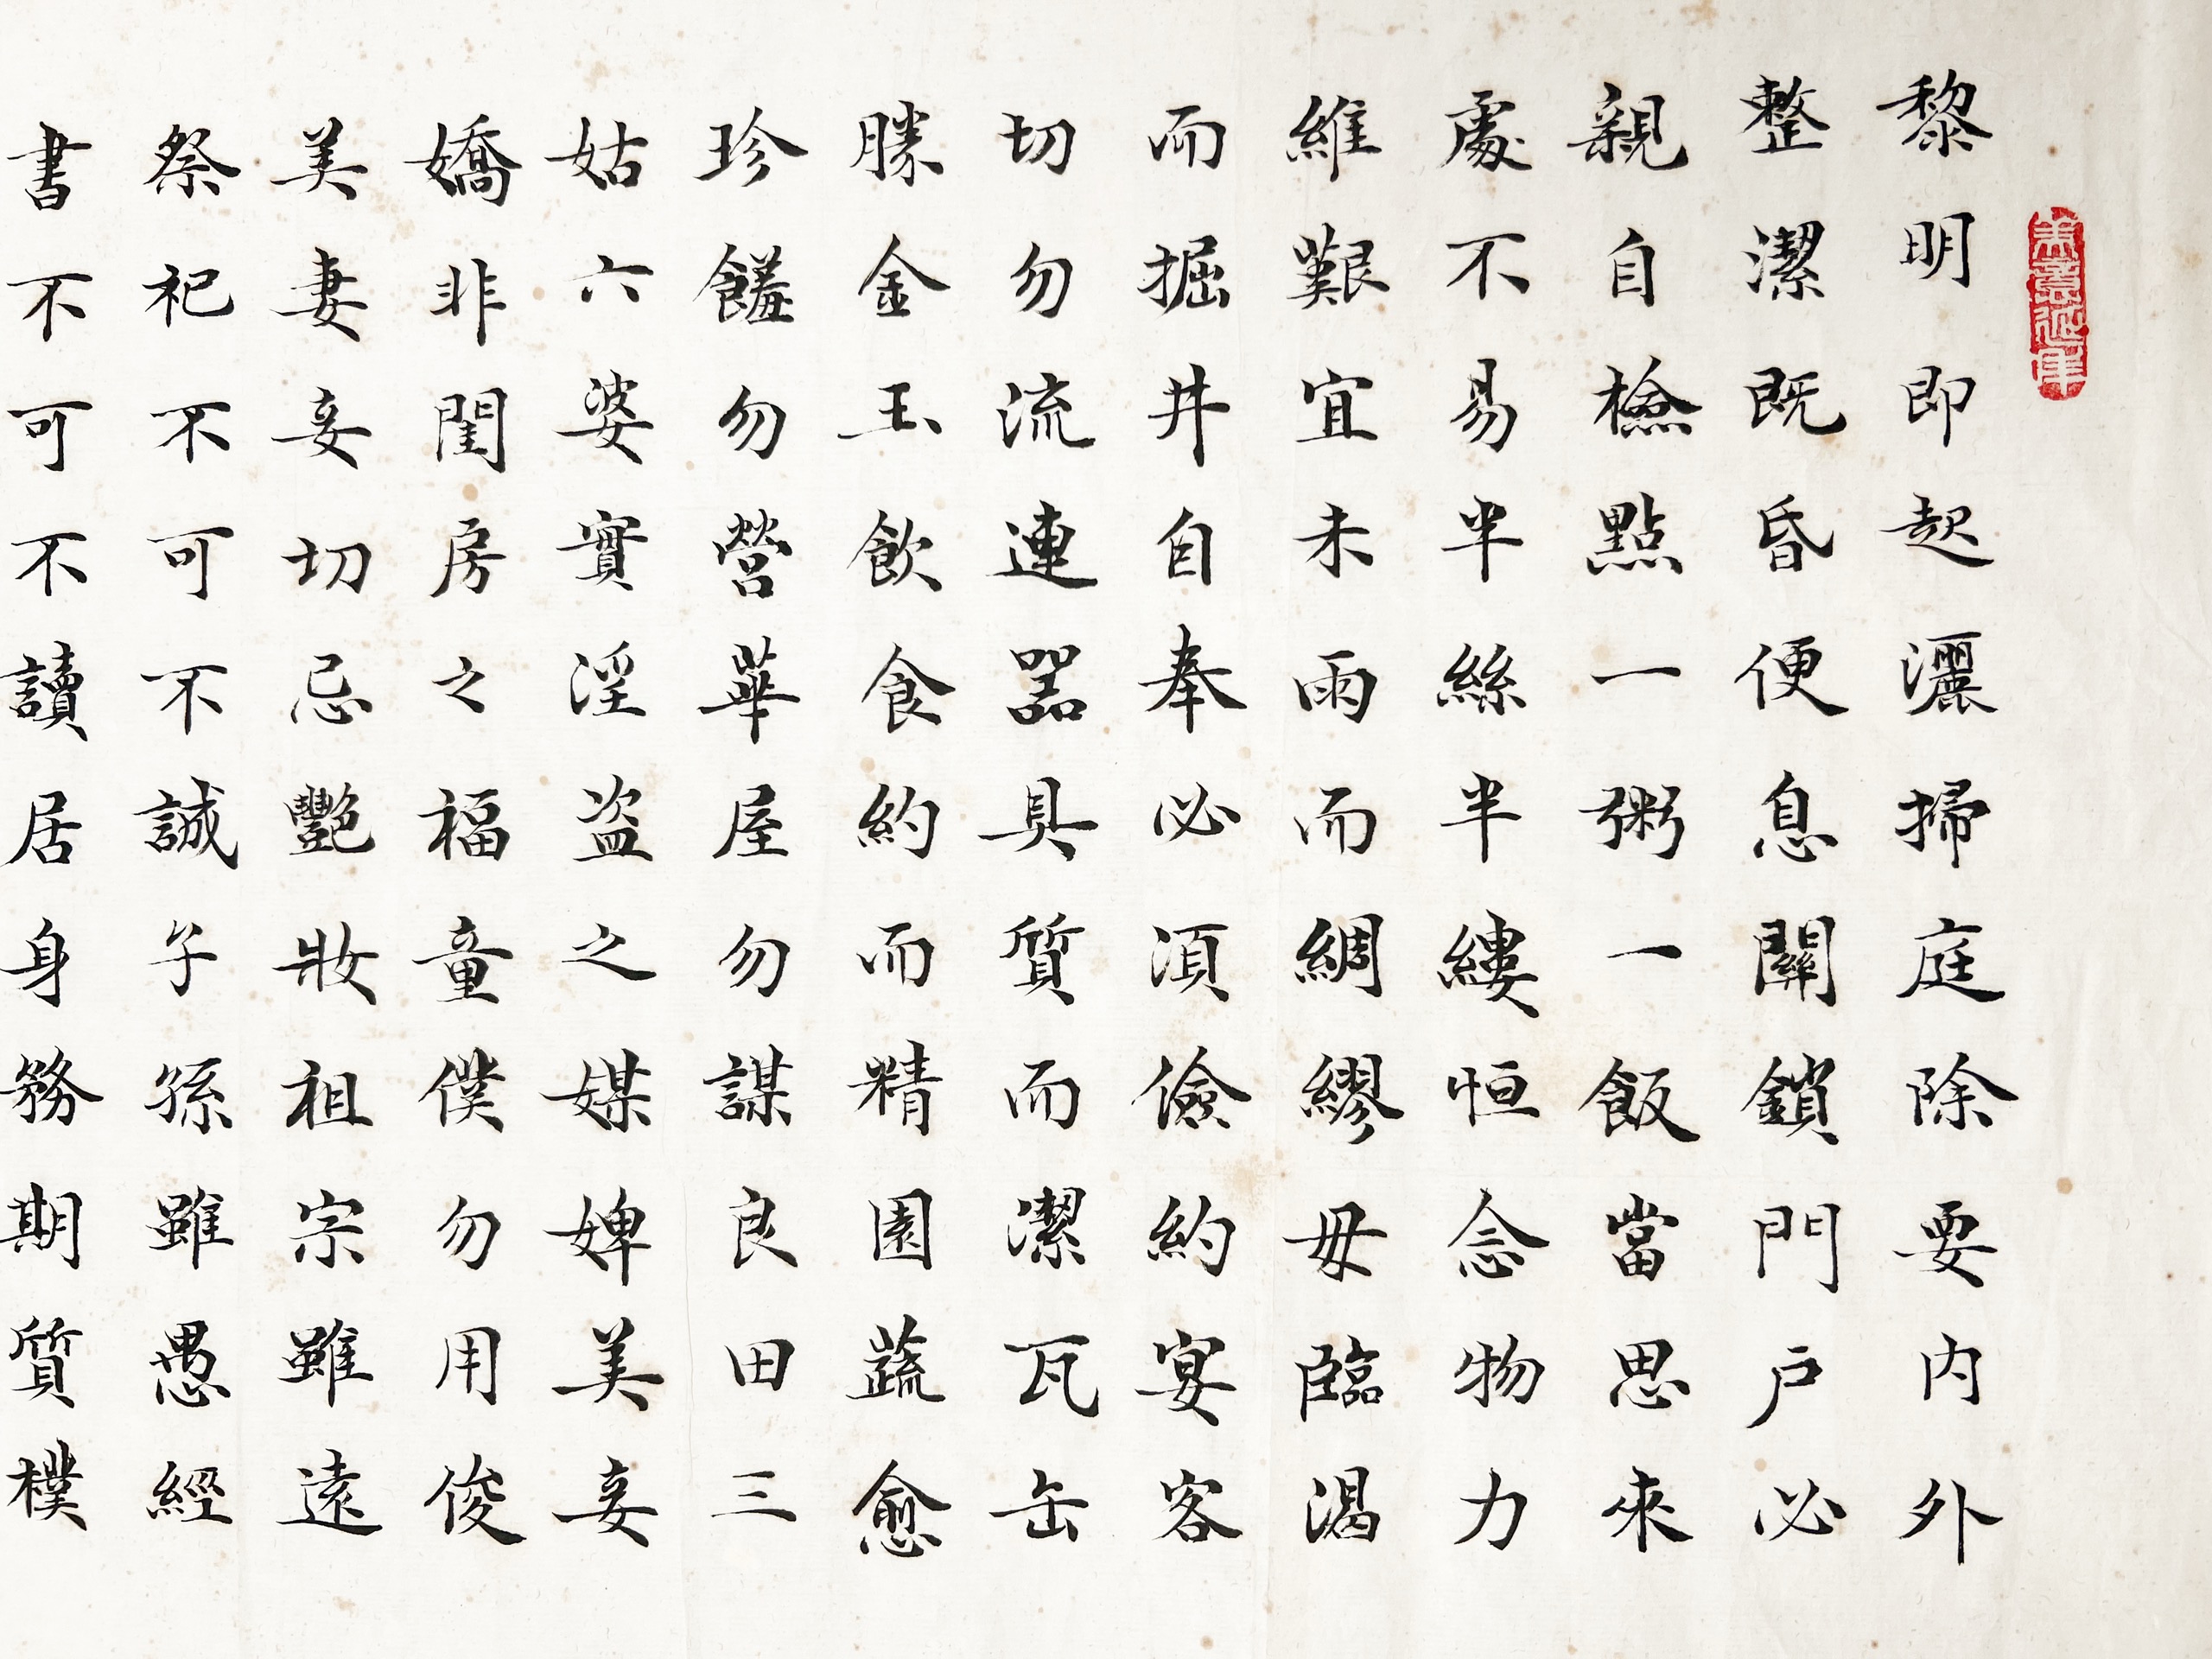 黎明即起灑掃庭除要内外
整潔既昏便息關鎖門户必
親自檢點一粥一飯當思來
處不易半絲半縷恒念物力
維艱宜未雨而綢繆毋臨渴
而掘井自奉必須儉約宴客
切勿流連器具質而潔瓦缶
勝金玉飲食約而精園蔬愈
珍饈勿營華屋勿謀良田三
姑六婆實淫盗之媒婢美妾
嬌非閨房之福童僕勿用俊
美妻妾切忌艷妝祖宗雖遠
祭祀不可不誠子孫雖愚經
書不可不讀居身務期質樸